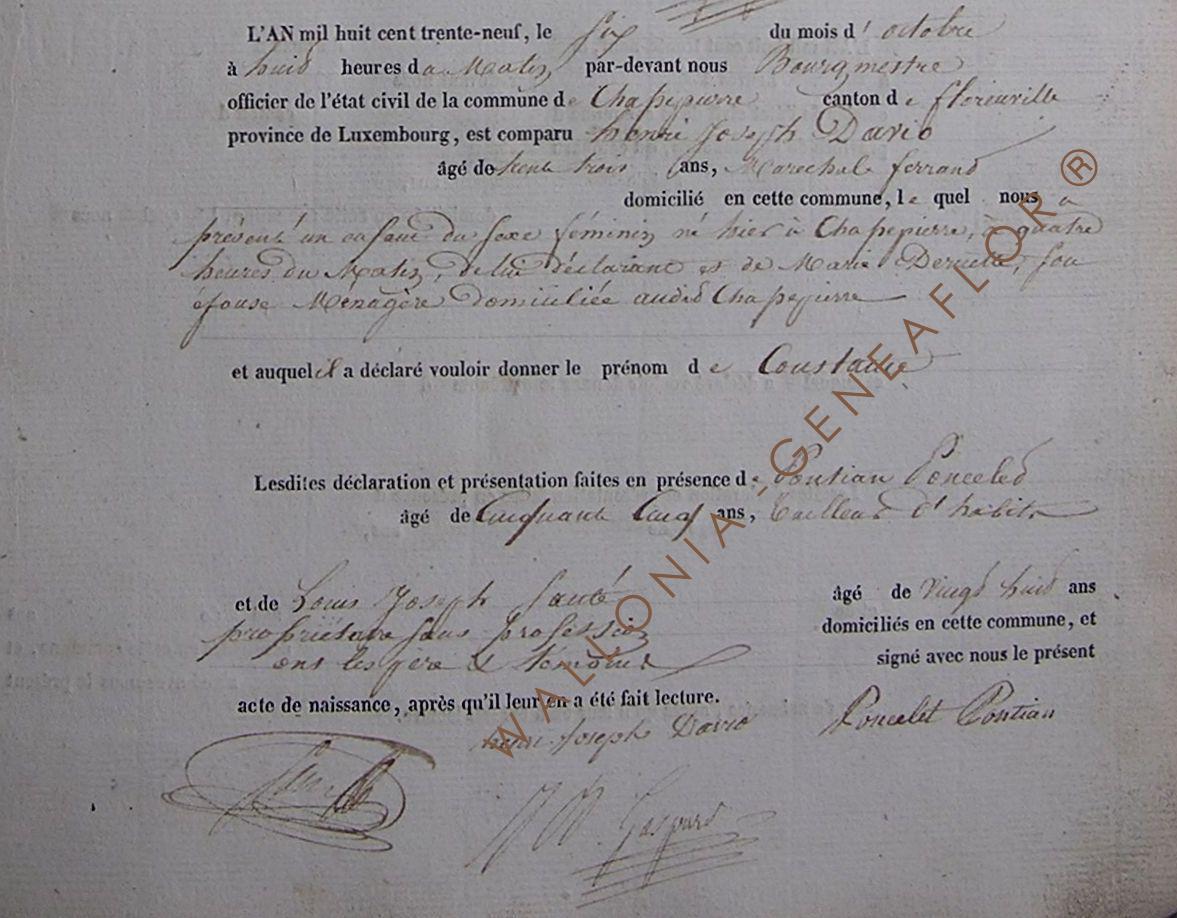 L'AN mil huit cent trente-neuf, le six du mois d' octobre
à huid heures du Matin par-devant nous Bourgmestre
officier de l'état civil de la commune de Chapepierre canton de florenville
province de Luxembourg, est comparu henri Joseph David
âgé de trente trois ans, Marechal ferrand
domicilié en cette commune, le quel nous a
présenté un enfant du sexe féminin né hier à Chapepierre, à quatre
heures du Matin, de lui déclarant et de Marie son
épouse Ménagère domiciliée audid Chapepierre
et auquel il a déclaré vouloir donner le prénom de Constance
Lesdites déclaration et présentation faites en présence de Pontian Ponceled
âgé de Cinquante Cinq ans, tailleur d'habits
et de Louis Joseph âgé de vingd huid ans
propriétaire sans profession domiciliés en cette commune, et
ont les père & témoins signé avec nous le présent
acte de naissance, après qu'il leur en a été fait lecture.
henri Joseph David Poncelet Pontian
Gaspard
WALLONIA-GENEAFLOR ®